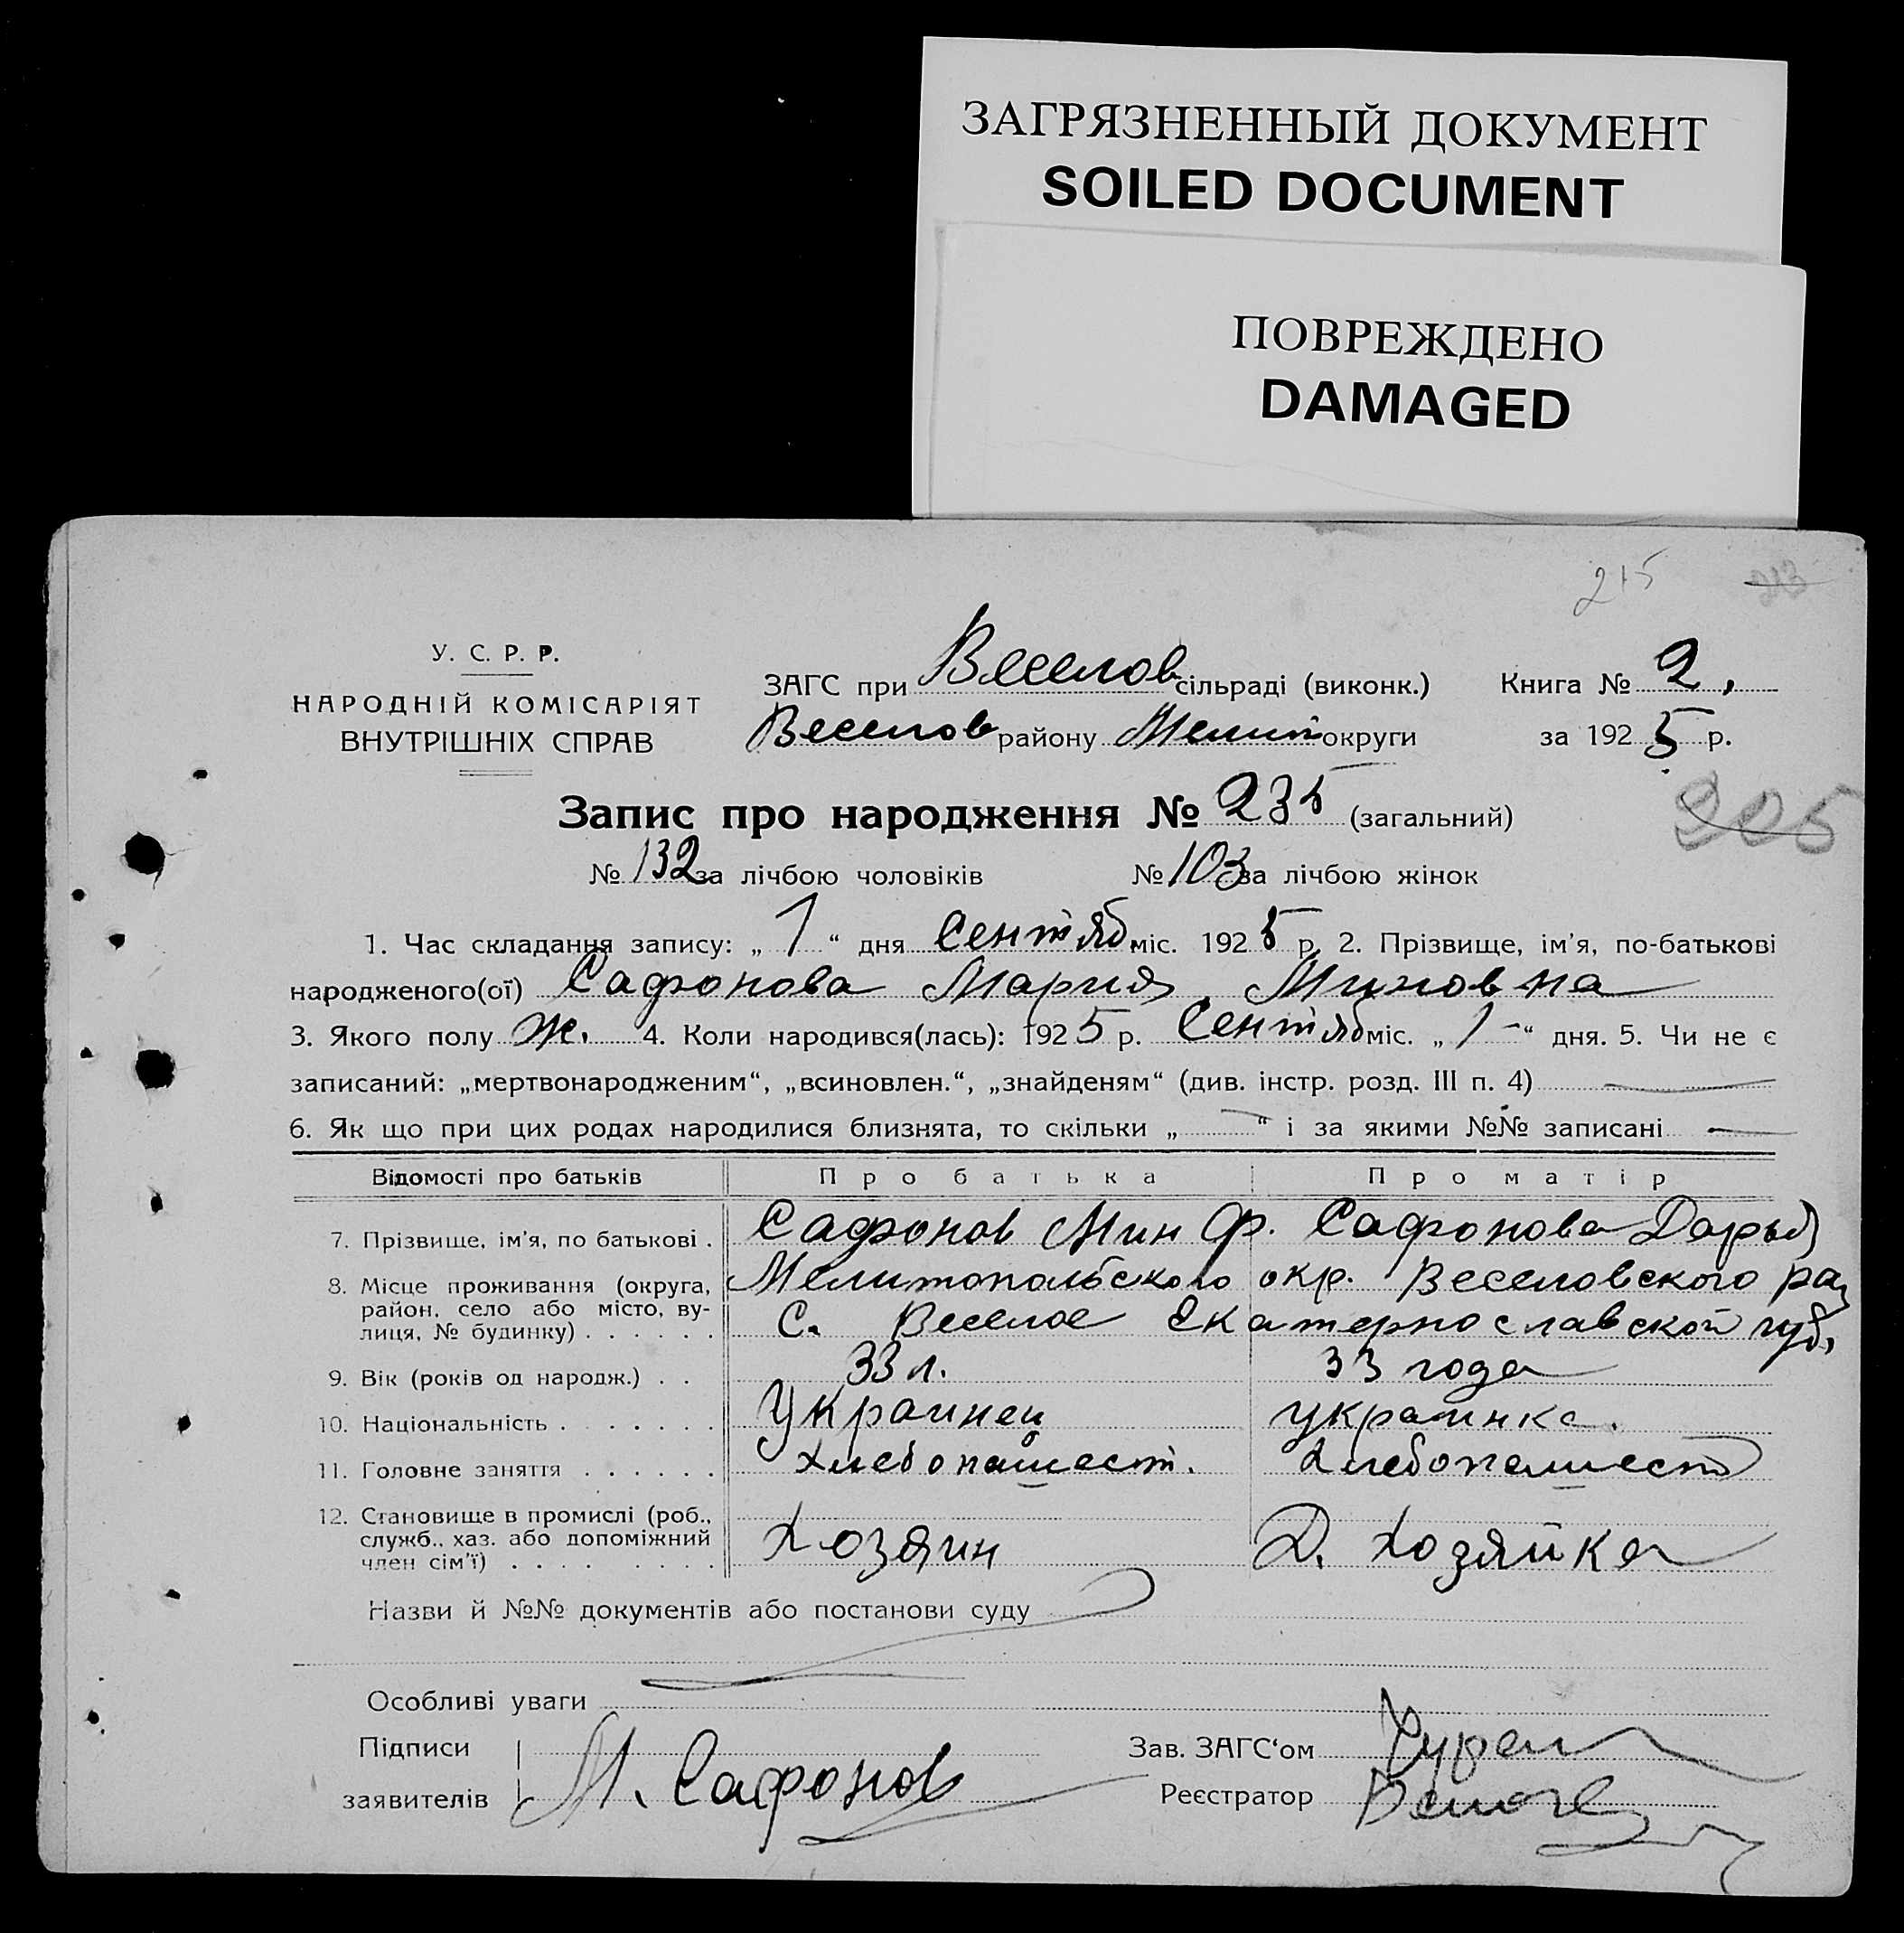 ЗАГРЯЗНЕННЫЙ ДОКУМЕНТ
SOILED DOCUMENT
ПОВРЕЖДЕНО
DAMAGED
215 213
У. С. Р. Р.
НАРОДНІЙ КОМІСАРІЯТ
ВНУТРІШНІХ СПРАВ
ЗАГС при Веселов сільраді (виконк.) Книга № 2,
Веселов району Мелит округи за 1925 р.
Запис про народження № 235 (загальний)
205
№ 132 за лічбою чоловіків № 103 за лічбою жінок
1. Час складання запису: „ 1 “ дня Сентяб міс. 1925 р. 2. Прізвище, ім'я, по-батькові
народженого(ої) Сафонова Мария Миновна
3. Якого полу ж. 4. Коли народився(лась): 1925 р. Сентяб міс. „ 1 - “ дня. 5. Чи не є
записаний: „мертвонародженим“, „всиновлен.“, „знайденям“ (див. інстр. розд. III п. 4) —
6. Як що при цих родах народилися близнята, то скільки „ — “ і за якими №№ записані —
Відомості про батьків Про батька Про матір
7. Прізвище, ім'я, по батькові . Сафонов Мин Ф. Сафонова Дарья
8. Місце проживання (округа, Мелитопольского окр. Веселовского ра
район, село або місто, ву-
лиця, № будинку) . . . . . . С. Веселое Екатеринославской губ,
9. Вік (років од народж.) . . 33 л. 33 года
10. Національність . . . . . . . Украинец украинка.
11. Головне заняття . . . . . . Хлебопашест. Хлебопашест
12. Становище в промислі (роб.,
служб., хаз. або допоміжний Хозяин Д. Хозяйка
член сім'ї) . . . . . . . .
Назви й №№ документів або постанови суду
Особливі уваги
Підписи
заявителів М. Сафонов
Зав. ЗАГС'ом
Реєстратор